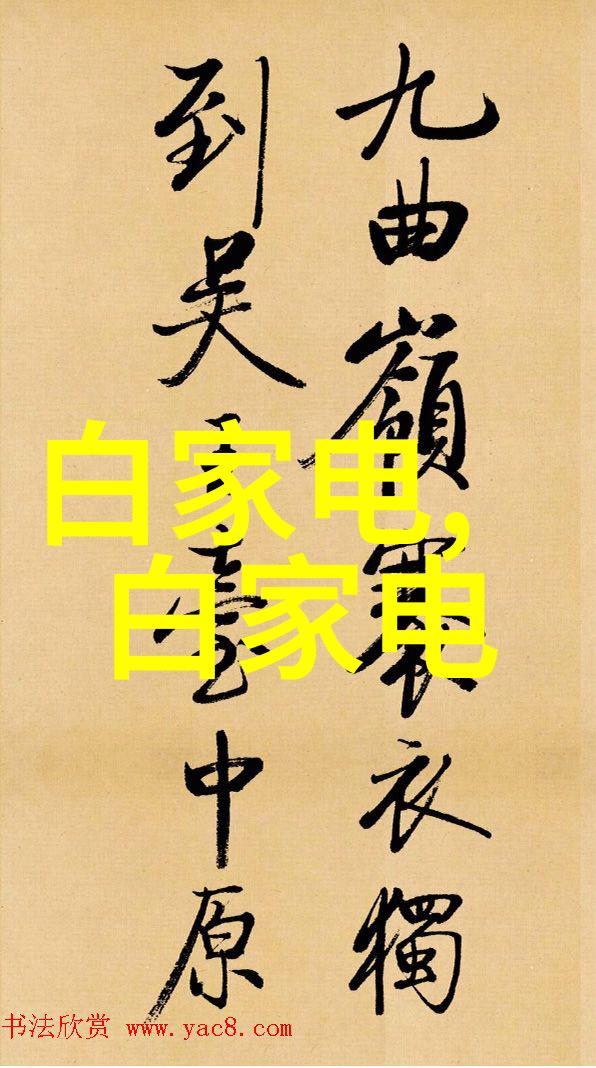 九曲嶺衣獨
到吳臺中原
白家电,
白家电
书法欣赏 www.yac8.com